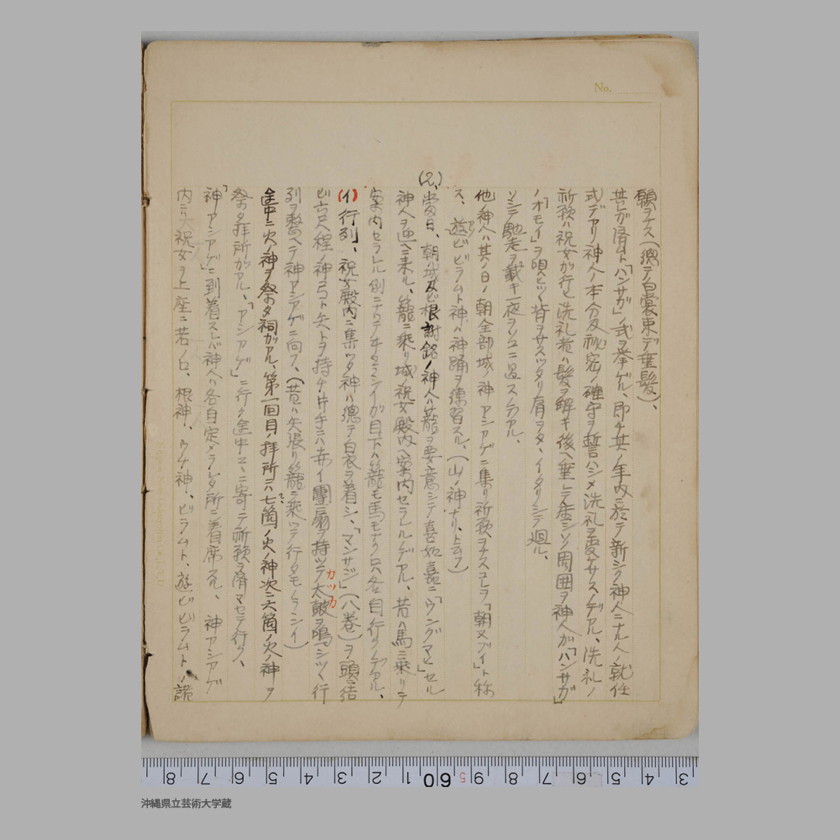 No.
願ヲナス(總テ白裳束デ垂髪)、
其ガ済ト「ハンサガ」式ヲ挙ゲル、即チ其ノ年内ニ於テ新シク神人ニナル人ノ就任
式デアリ神人ノ本分及秘密ノ確守ヲ誓ハシメ洗礼ヲ受サスノデアル、洗礼ノ
祈願ハ祝女ガ行ヒ洗礼者ハ髪ヲ解キ後ヘ垂レテ座シソノ周囲ヲ神人ガ「ハンサガ」
ノ「オモイ」ヲ唄ヒツヽ背ヲサスツタリ肩ヲタヽイタリシテ廻ル、
ソシテ馳走ヲ戴キ一夜ヲソコニ過スノデアル、
他神人ハ其ノ日ノ朝全部城ノ神アシアゲニ集リ祈願ヲナスコレヲ「朝ヌブイ」ト称
ス、遊ビビラムト神ハ神踊ヲ練習スル、(山ノ神ナリ、上ヲフ)
(2)、當日、朝ハ城及ビ根謝銘ノ神人ハ籠ヲ要意シテ喜如嘉ニ「ウングマヒ」セル
神人ヲ迎ヘニ来ル、籠ニ乘リ城祝女殿内ヘ案内セラレルデアル、昔ハ馬ニ乘リテ
案内セラレル例ニナリテヰタラシイガ目下ハ籠モ馬モナク只各自行クノデアル、
(イ)行列、祝女殿内ニ集ツタ神人ハ總テ白衣ヲ着シ、「マンサジ」(八巻)ヲ頭ニ結
ビ六尺程ノ神弓ト矢トヲ持チ片手ニハ赤イ團扇ヲ持ツテ太鼓ヲ鳴シツヽ行
カツカ
列ヲ整ヘテ神アシアゲニ向フ、(昔ハ矢張リ籠ニ乘ツテ行タモノラシイ)
途中ニ火ノ神ヲ祭タ祠ガアル、第一回目ノ拝所ニハ七箇ノ火ノ神次ニ六箇ノ火ノ神ヲ
祭タ拝所ガアル、「アシアゲ」ニ行ク途中ココニ寄テ祈願ヲ済マセテ行ク、
「神アシアゲ」ニ到着スレバ神人ハ各自定メラレタ所ニ着席スル、神アシアゲ
内ニハ祝女ヲ上座ニ若ノロ、根神、ウケ神、ビラムト、遊ビビラムトノ諸
8 7 6 5 4 3 2 1 60 9 8 7 6 5 4 3
沖縄県立芸術大学蔵